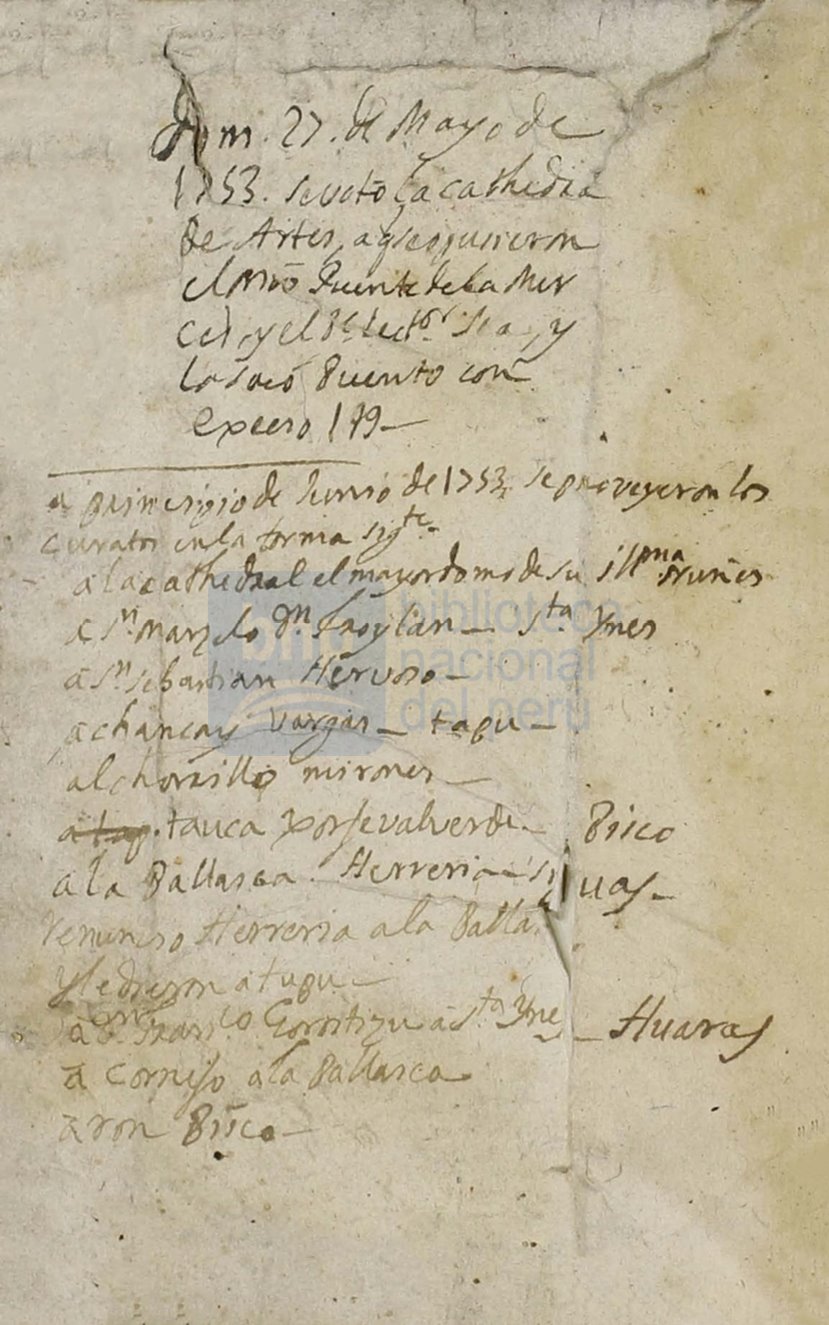 Dom. 27. de Mayo de
1753. se voto la cathedra
de Artes, a q̃ se opusieron
el Mrõ Puente de la Mer
ced, y el Pe. Lector y
la saco Puente con
exceso 179—
a principio de Junio de 1753. se proveyeron los
curatos en la forma sigte.
a la cathedral el mayordomo de su Illma Nuñes
a Sn. Marzelo Dn. Froylan — Sta Ynes
a Sn. Sebastian Hervoso —
a chancay vargas — tapu —
al chorrillo mirones —
a tap. tauca Valverde — Pisco
a la Pallasca Herreria
Renuncio Herreria a la Palla
y le dieron a tapu —
a Dn. Franco Gorostizu a Sta Yne — Huaras
a Cornejo a la Pallasca
a ron Pisco —
biblioteca
nacional
del perú